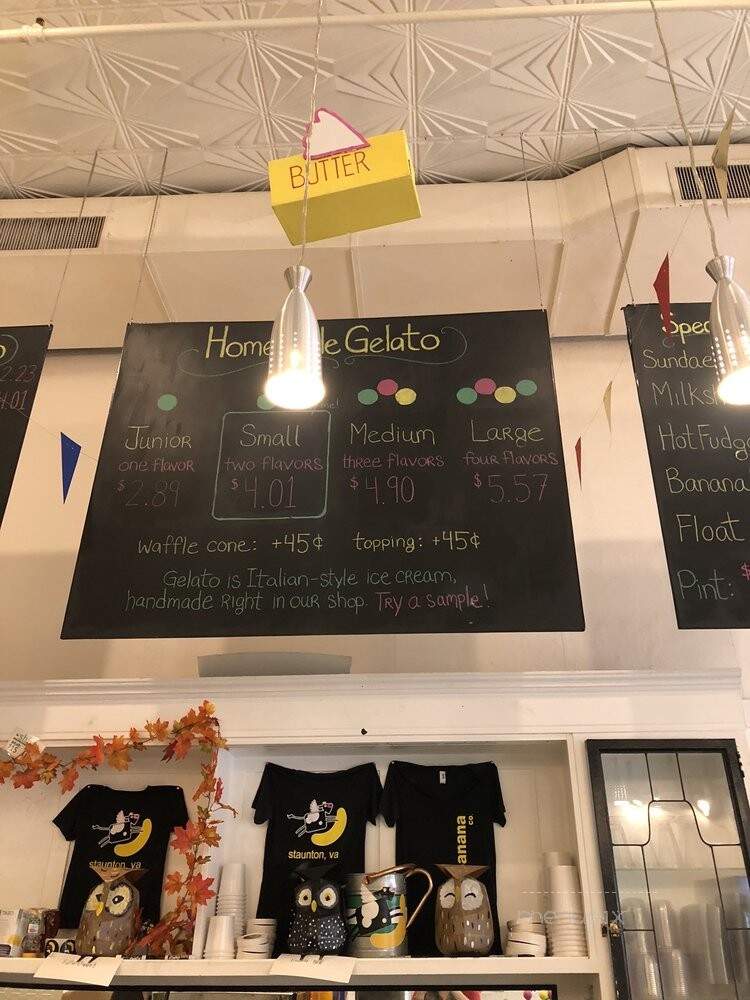 BUTTER
Gelato
Junior
one flavor
$2.89
Small
two flavors
$4.01
Medium
three flavors
$4.90
Large
four flavors
$5.57
waffle cone: +45¢ topping: +45¢
Gelato is Italian-style ice cream,
handmade right in our shop. Try a sample!
2.23
4.01
Sundae
Hot Fudge
Banana
Float
Pint: $
staunton, va
staunton, va
anana
co.